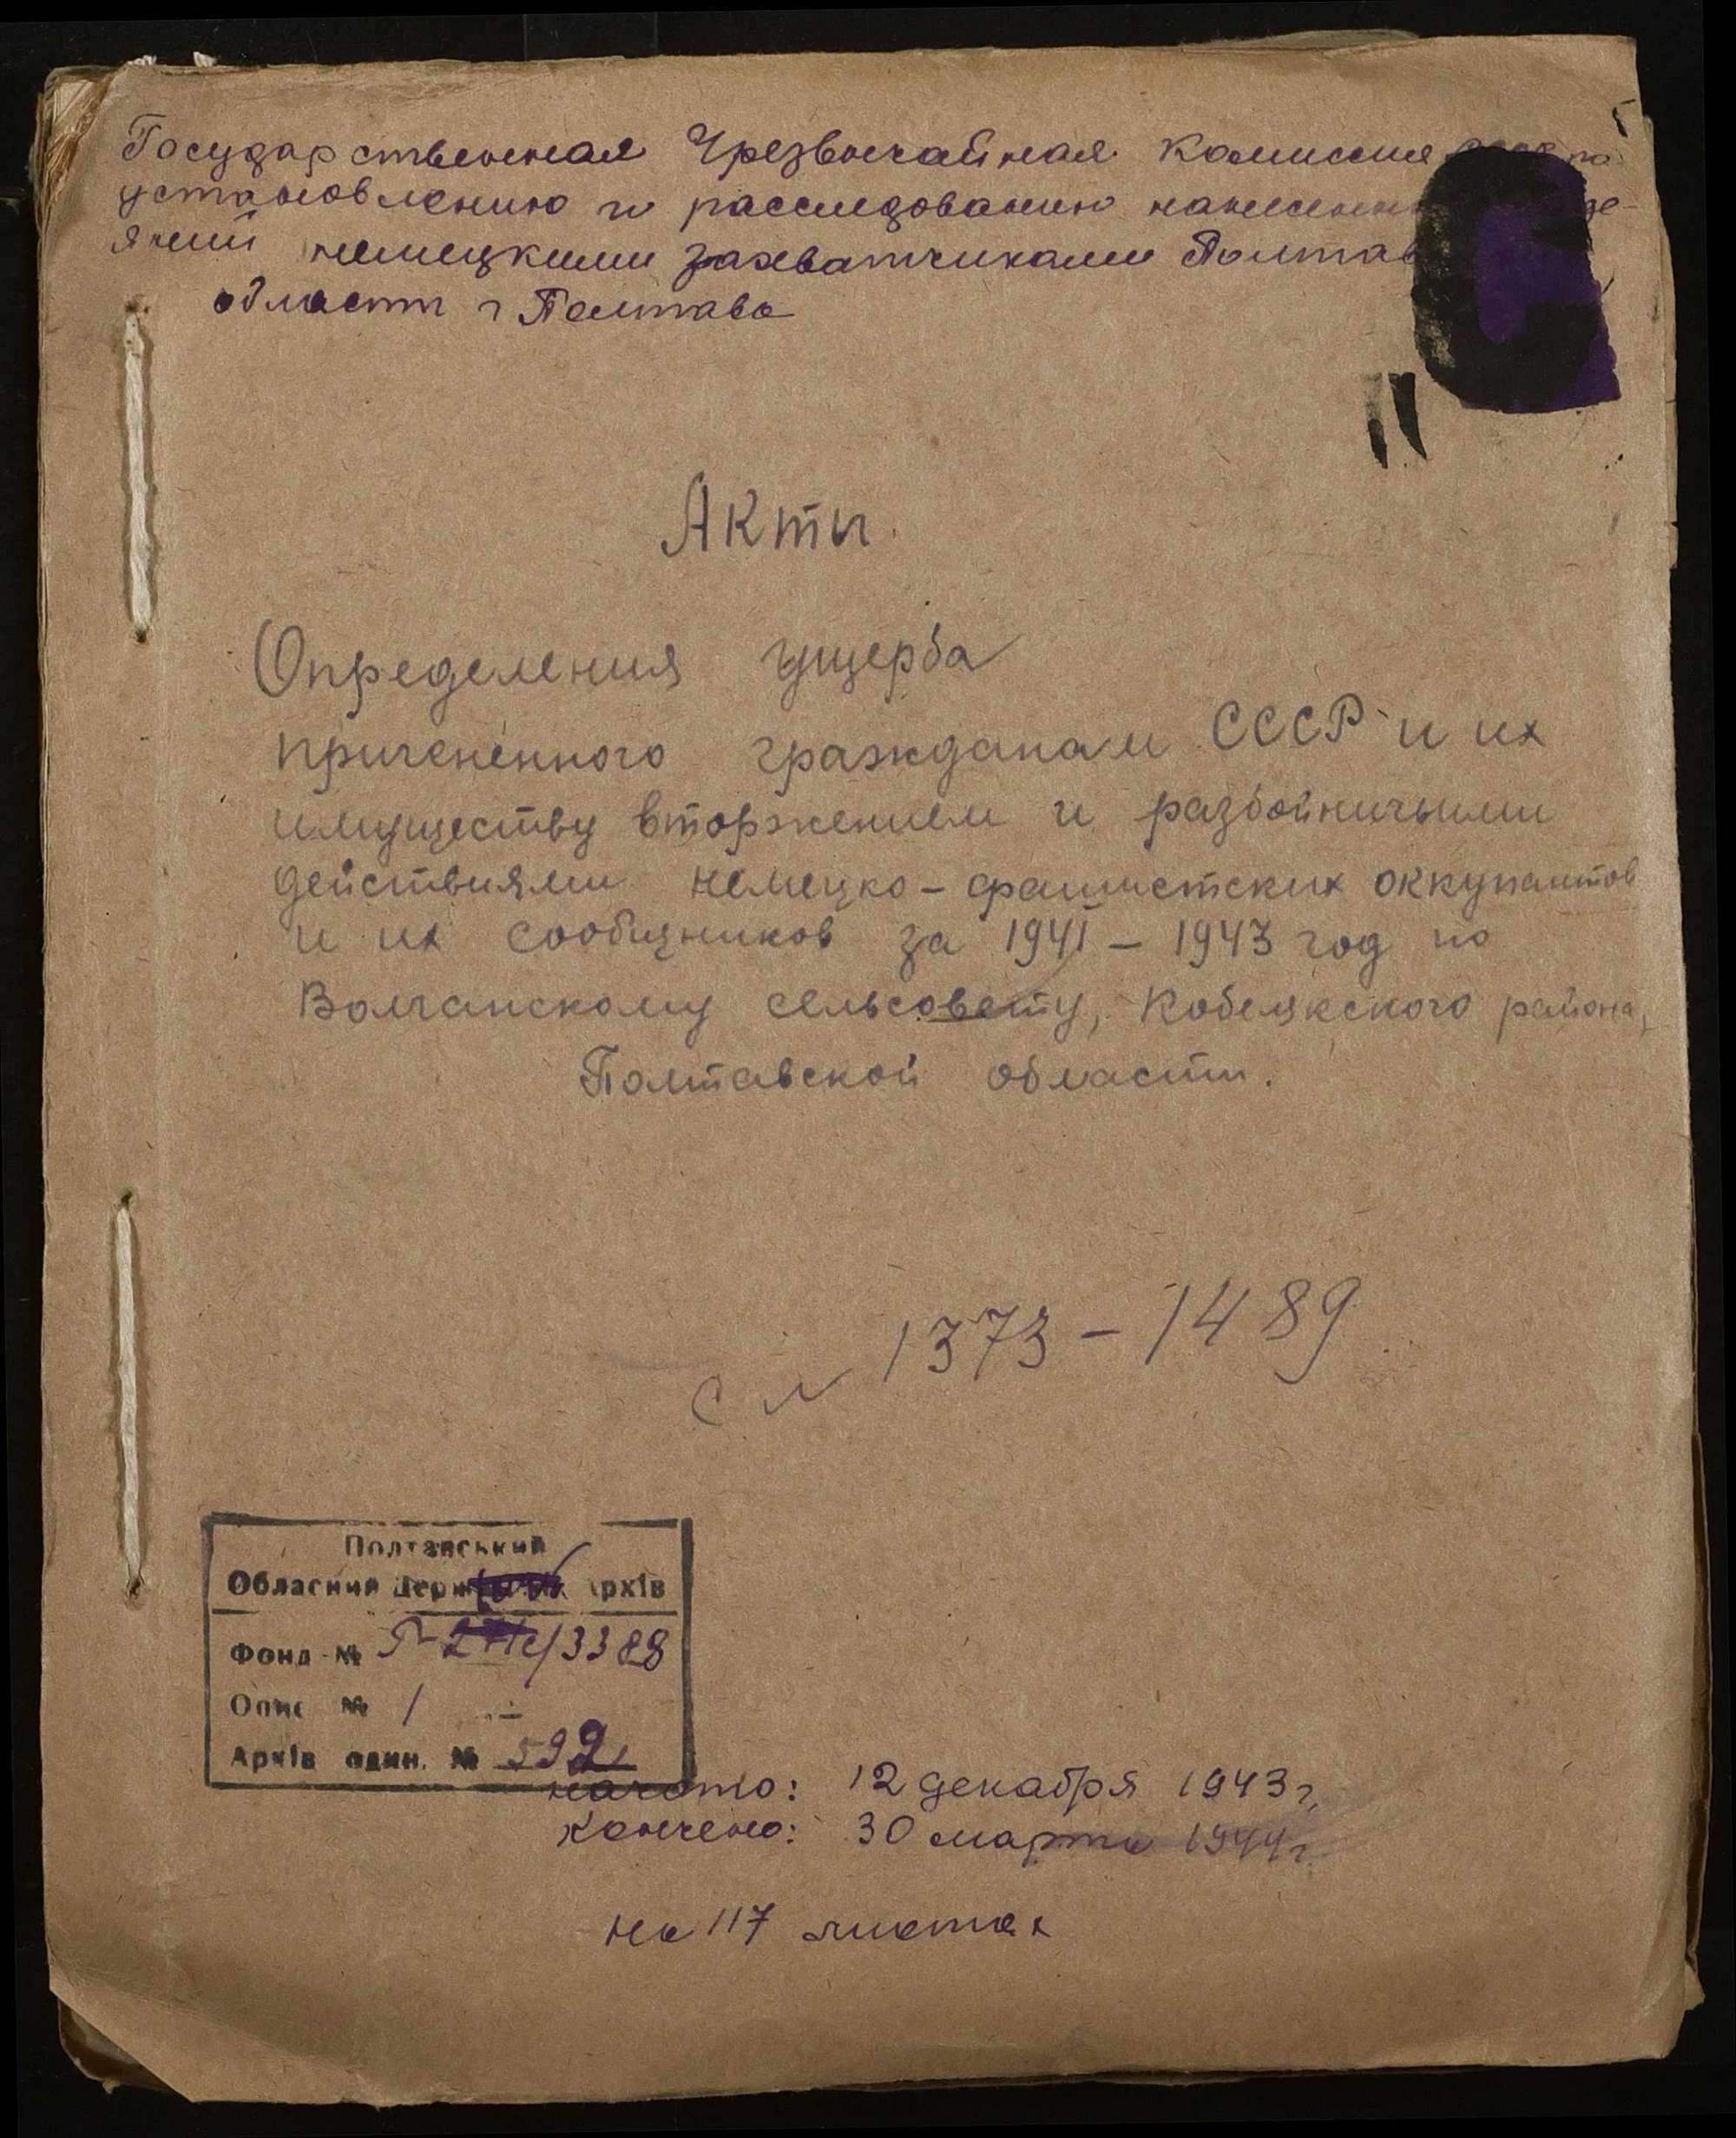 Государственная Чрезвычайная Комиссия по
установлению и расследованию
яний немецкими захватчиками Полтав
области г Полтава
Акты
Определения ущерба
приченённого гражданам СССР и их
имуществу вторжением и разбойничьими
действиями немецко-фашистских оккупантов
и их сообщников за 1941 - 1943 год по
Волчанскому сельсовету, Кобелякского района,
Полтавской области.
с № 1373 - 1489
Полтавський
Обласний Держ Архів
Фонд № Р- 3388
Опис № 1
Архів один. № 592
начато: 12 декабря 1943 г.
кончено: 30 марта 1944 г
на 117 листах